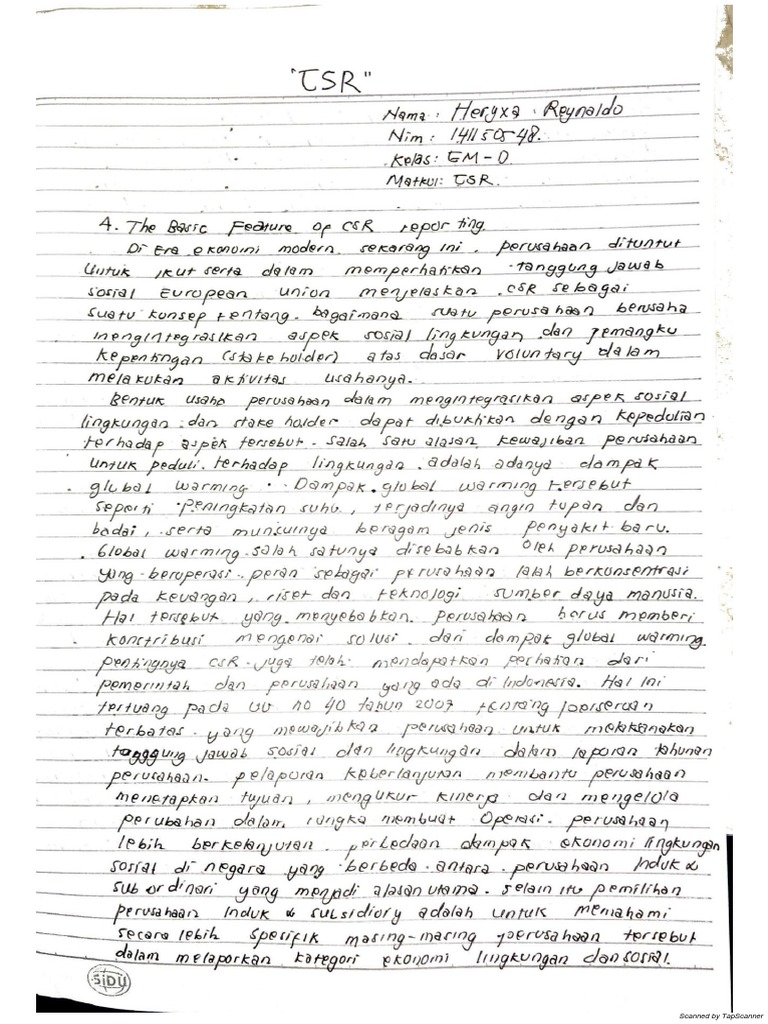 "CSR"
Nama : Heryxa . Reynaldo
Nim : 141150548.
Kelas: EM-O
Matkul: CSR.
4. The Basic Feature of CSR reporting.
Di Era ekonomi modern sekarang ini . perusahaan dituntut
untuk ikut serta dalam memperhatikan tanggung jawab
sosial European union menjelaskan CSR sebagai
suatu konsep tentang. bagaimana suatu perusahaan berusaha
mengintegrasikan aspek sosial lingkungan dan pemangku
kepentingan (stakeholder) atas dasar voluntary dalam
melakukan aktivitas usahanya.
Bentuk usaha perusahaan dalam mengintegrasikan aspek sosial
lingkungan dan stake holder dapat dibuktikan dengan kepedulian
terhadap aspek tersebut . salah satu alasan kewajiban perusahaan
untuk peduli terhadap lingkungan adalah adanya dampak
global warming . Dampak global warming tersebut
seperti peningkatan suhu , terjadinya angin tupan dan
badai , serta munculnya beragam jenis penyakit baru.
Global warming salah satunya disebabkan oleh perusahaan
yang beruperasi . peran sebagai perusahaan ialah berkonsentrasi
pada keuangan , riset dan teknologi sumber daya manusia.
Hal tersebut yang menyebabkan perusahaan harus memberi
konstribusi mengenai solusi dari dampak global warming.
pentingnya CSR juga telah mendapatkan perhatian dari
pemerintah dan perusahaan yang ada di Indonesia. Hal ini
tertuang pada UU no 40 tahun 2007 tentang perseruan
terbatas yang mewajibkan perusahaan untuk melaksanakan
tanggung jawab sosial dan lingkungan dalam laporan tahunan
perusahaan. pelaporan keberlanjutan membantu perusahaan
menetapkan tujuan , mengukur kinerja dan mengelola
perubahan dalam rangka membuat operasi perusahaan
lebih berkelanjutan . perbedaan dampak ekonomi lingkungan
sosial di negara yang berbeda antara perusahaan Induk &
sub ordinari yang menjadi alasan utama. selain itu pemilihan
perusahaan Induk & subsidiory adalah untuk memahami
secara lebih spesifik masing-masing perusahaan tersebut
dalam melaporkan kategori ekonomi lingkungan dan sosial.
SiDU
Scanned by TapScanner